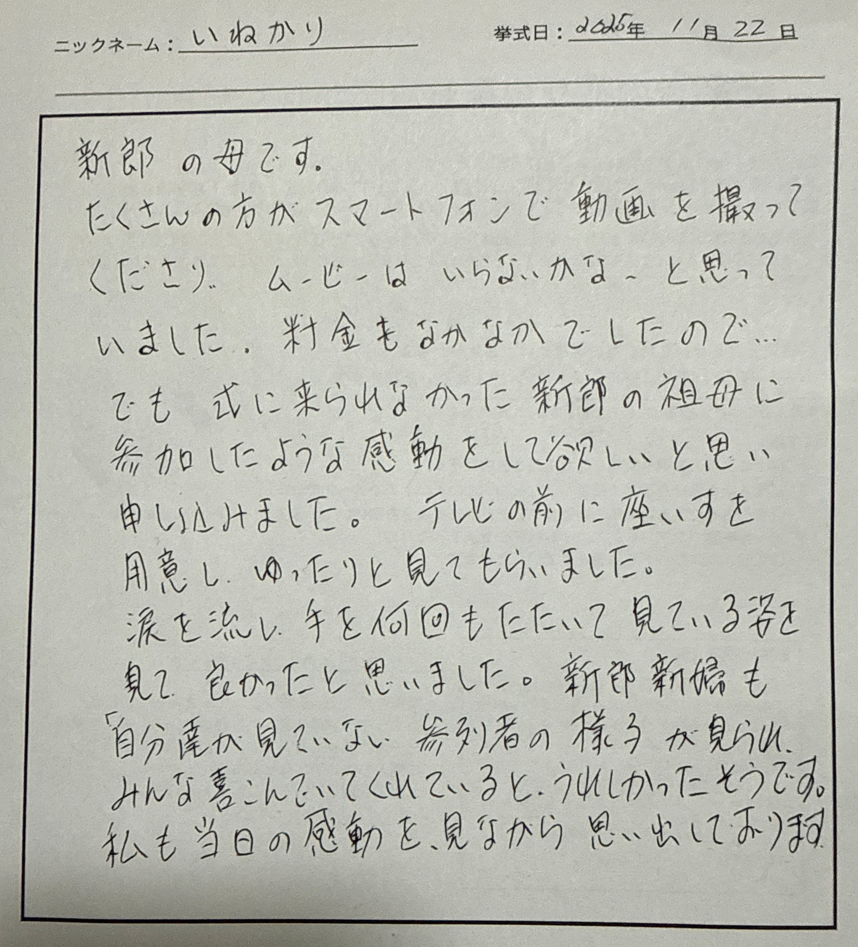 ニックネーム：いねかり
挙式日：2025年 11月 22日
新郎の母です。
たくさんの方がスマートフォンで動画を撮って
くださり、ムービーはいらないかな〜と思って
いました。料金もなかなかでしたので…
でも 式に来られなかった新郎の祖母に
参加したような感動をして欲しいと思い
申し込みました。テレビの前に座いすを
用意し、ゆったりと見てもらいました。
涙を流し、手を何回もたたいて見ている姿を
見て、良かったと思いました。新郎新婦も
「自分達が見ていない参列者の様子が見られ、
みんな喜こんでいてくれていると、うれしかったそうです。
私も当日の感動を、見ながら思い出しております